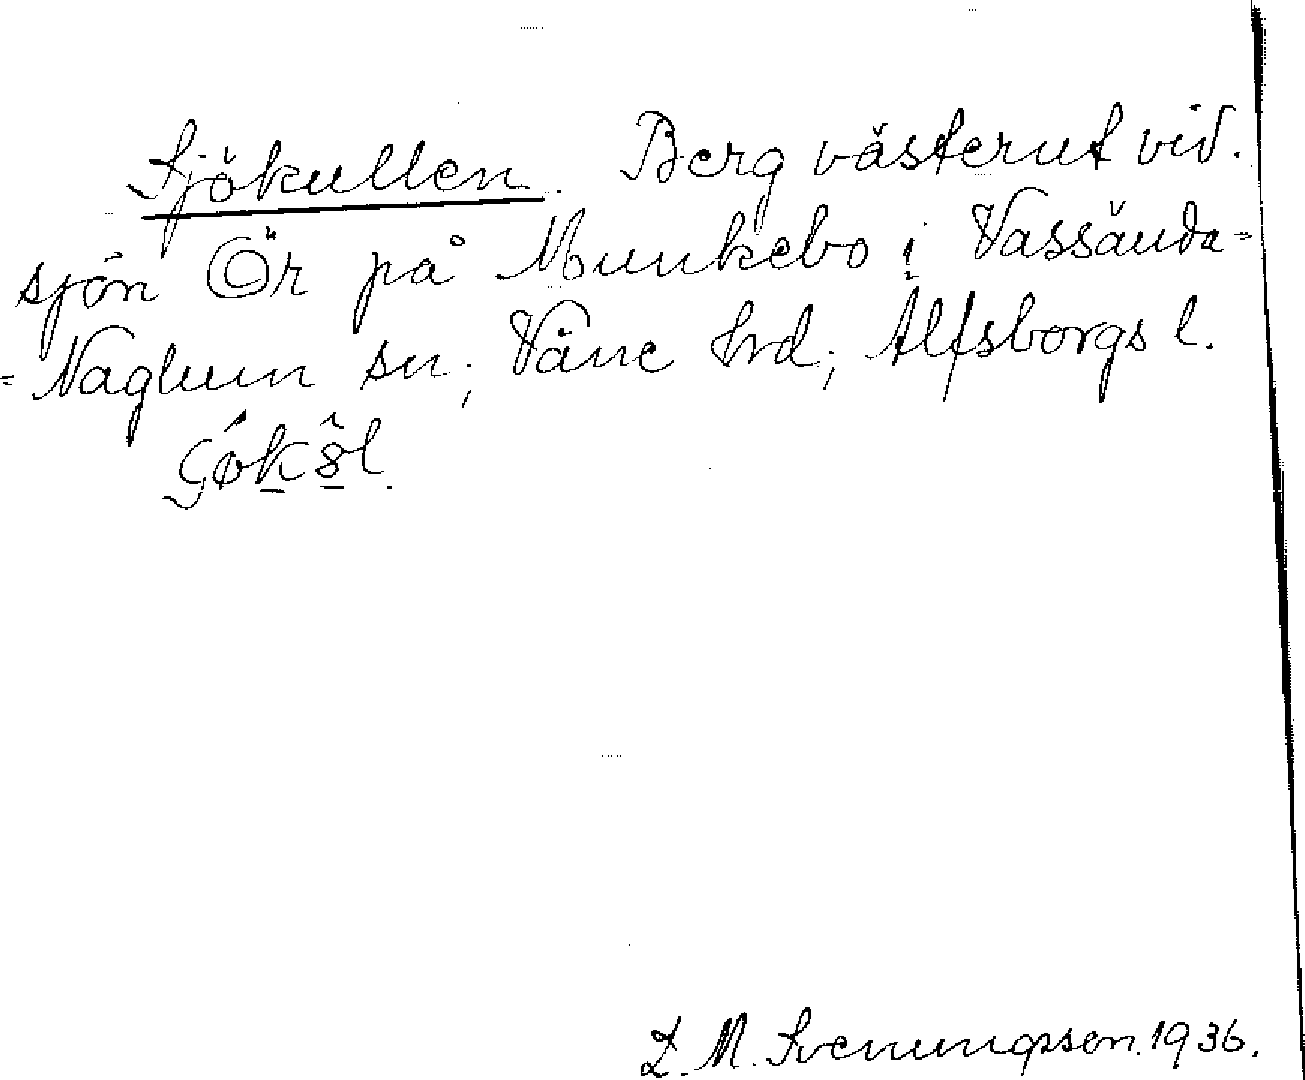 Sjökullen. Berg västerut vid.
sjön Ör på Munkebo i Vassända=
=Naglum sn; Väne hrd; Älfsborgs l.
L. M. Svenungsson. 1936.